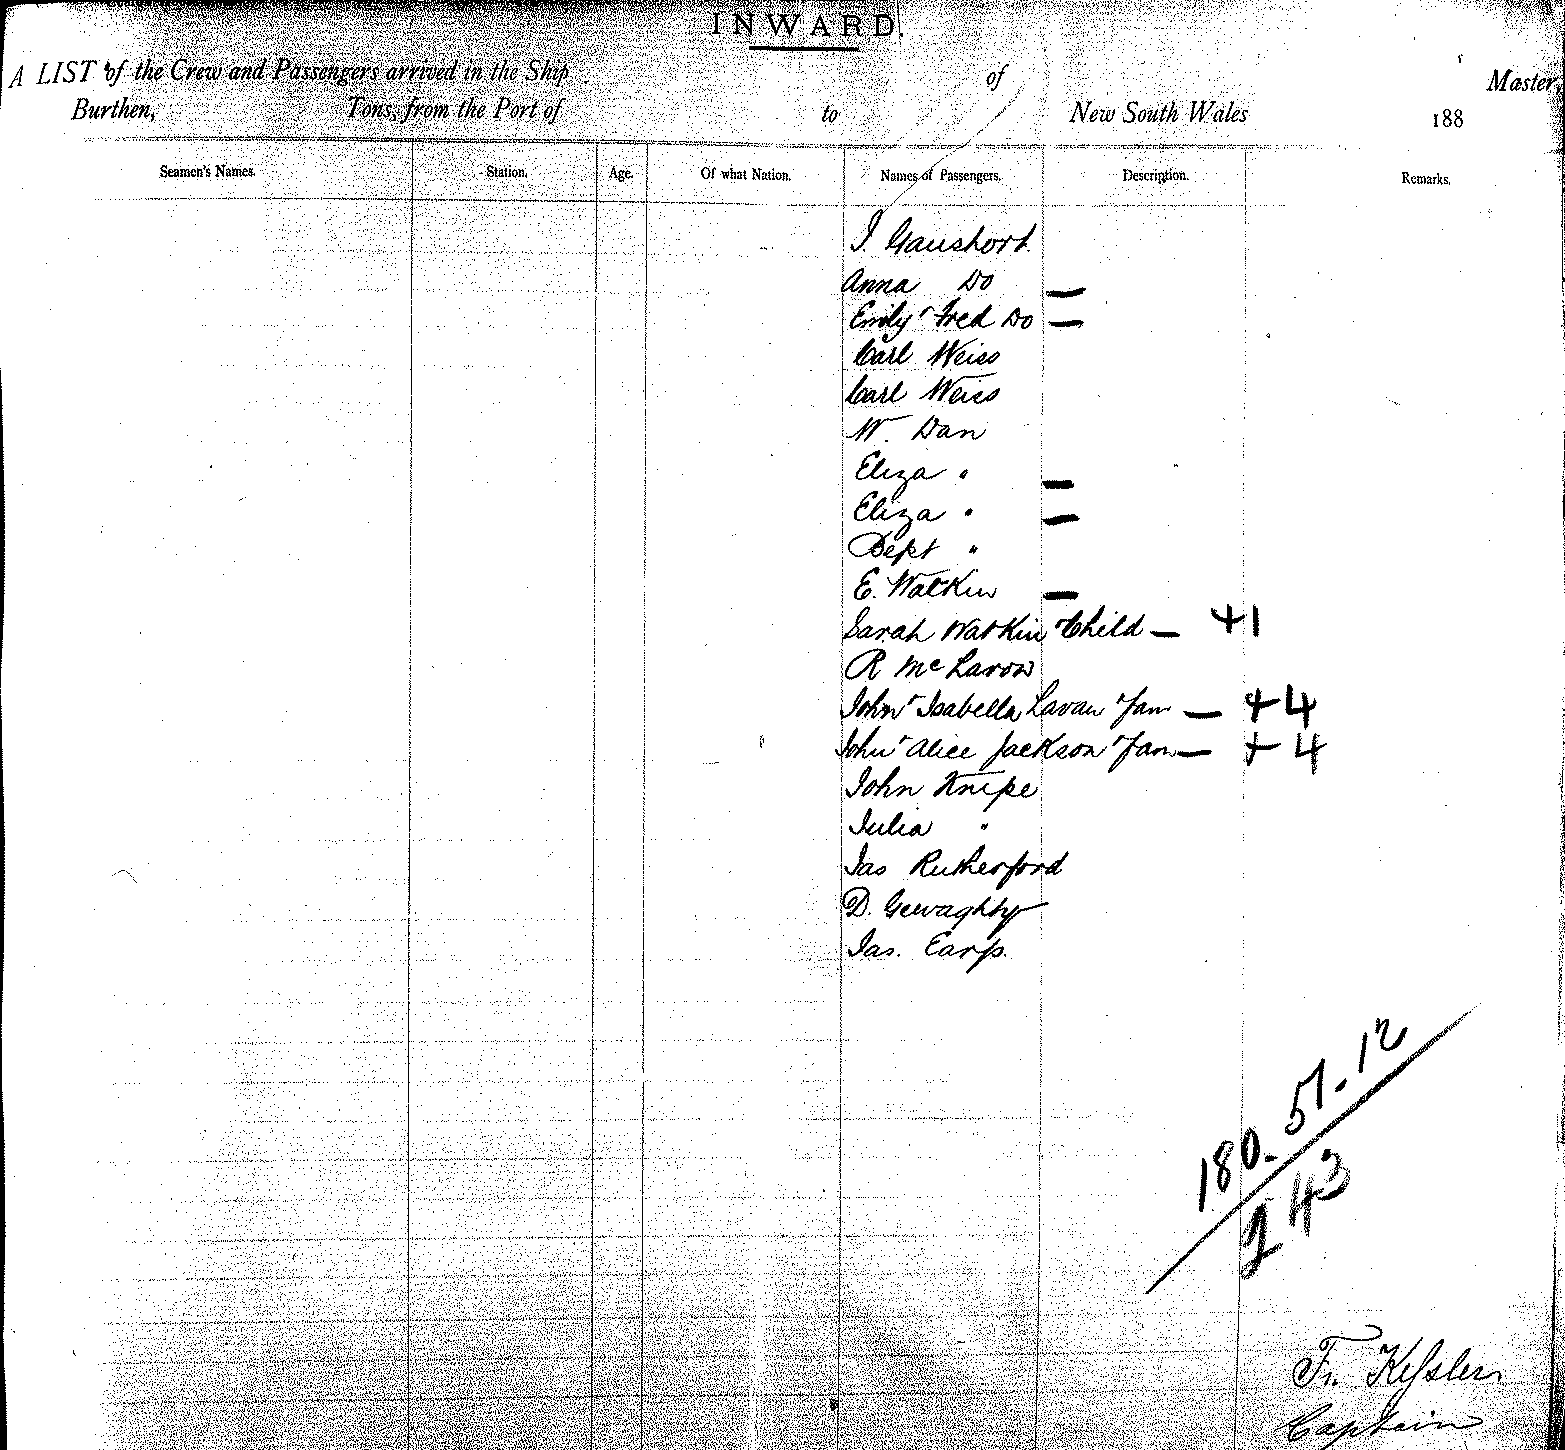 INWARD.
A LIST of the Crew and Passengers arrived in the Ship of Master,
Burthen, Tons, from the Port of to New South Wales 188
Seamen's Names. Station. Age. Of what Nation. Names of Passengers. Description. Remarks.
J. Gaushort
Anna Do —
Emily + Fred Do —
Carl Weiss
Carl Weiss
W. Dan
Eliza " —
Eliza " —
Bept "
E. Watkin —
Sarah Watkin + Child — +1
R McLaron
John + Isabella Lavan + fam — +4
John + Alice Jackson + fam — +4
John Knipe
Julia "
Jas Rutherford
D. Gewaghty
Jas. Earp.
180. 51. 12
243
Fr. Kessler
Captain